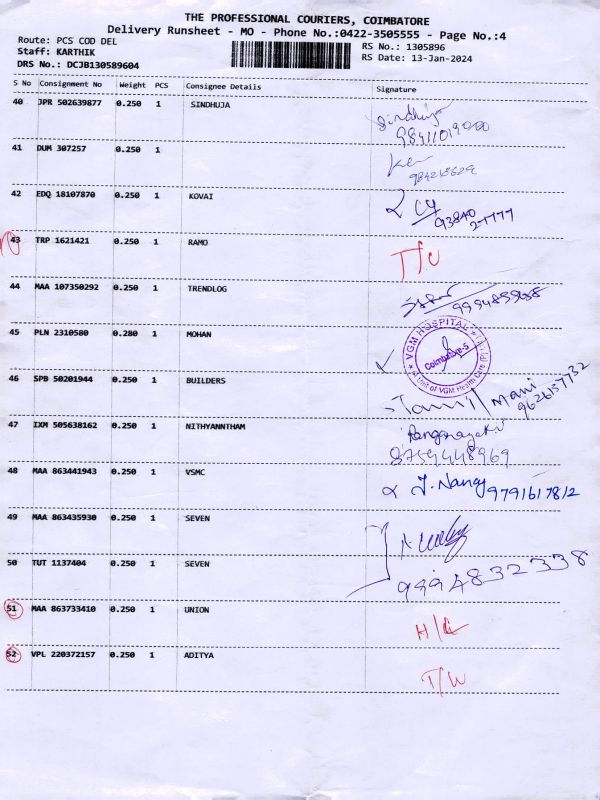 THE PROFESSIONAL COURIERS, COIMBATORE
Delivery Runsheet - MO - Phone No.:0422-3505555 - Page No.:4
Route: PCS COD DEL
Staff: KARTHIK
DRS No.: DCJB130589604
RS No.: 1305896
RS Date: 13-Jan-2024
S No Consignment No Weight PCS Consignee Details Signature
40 JPR 502639877 0.250 1 SINDHUJA
Sindhuja
41 DUM 307257 0.250 1
42 EDQ 18107870 0.250 1 KOVAI
93840
27777
43 TRP 1621421 0.250 1 RAMO
44 MAA 107350292 0.250 1 TRENDLOG
45 PLN 2310580 0.280 1 MOHAN
VGM HOSPITAL
Coimbatore-5
A Unit of VGM Health Care (P)
46 SPB 50201944 0.250 1 BUILDERS
Mani
9626137732
47 IXM 505638162 0.250 1 NITHYANNTHAM
8754448969
48 MAA 863441943 0.250 1 VSMC
9791617812
49 MAA 863435930 0.250 1 SEVEN
50 TUT 1137404 0.250 1 SEVEN
9994832338
51 MAA 863733410 0.250 1 UNION
52 VPL 220372157 0.250 1 ADITYA